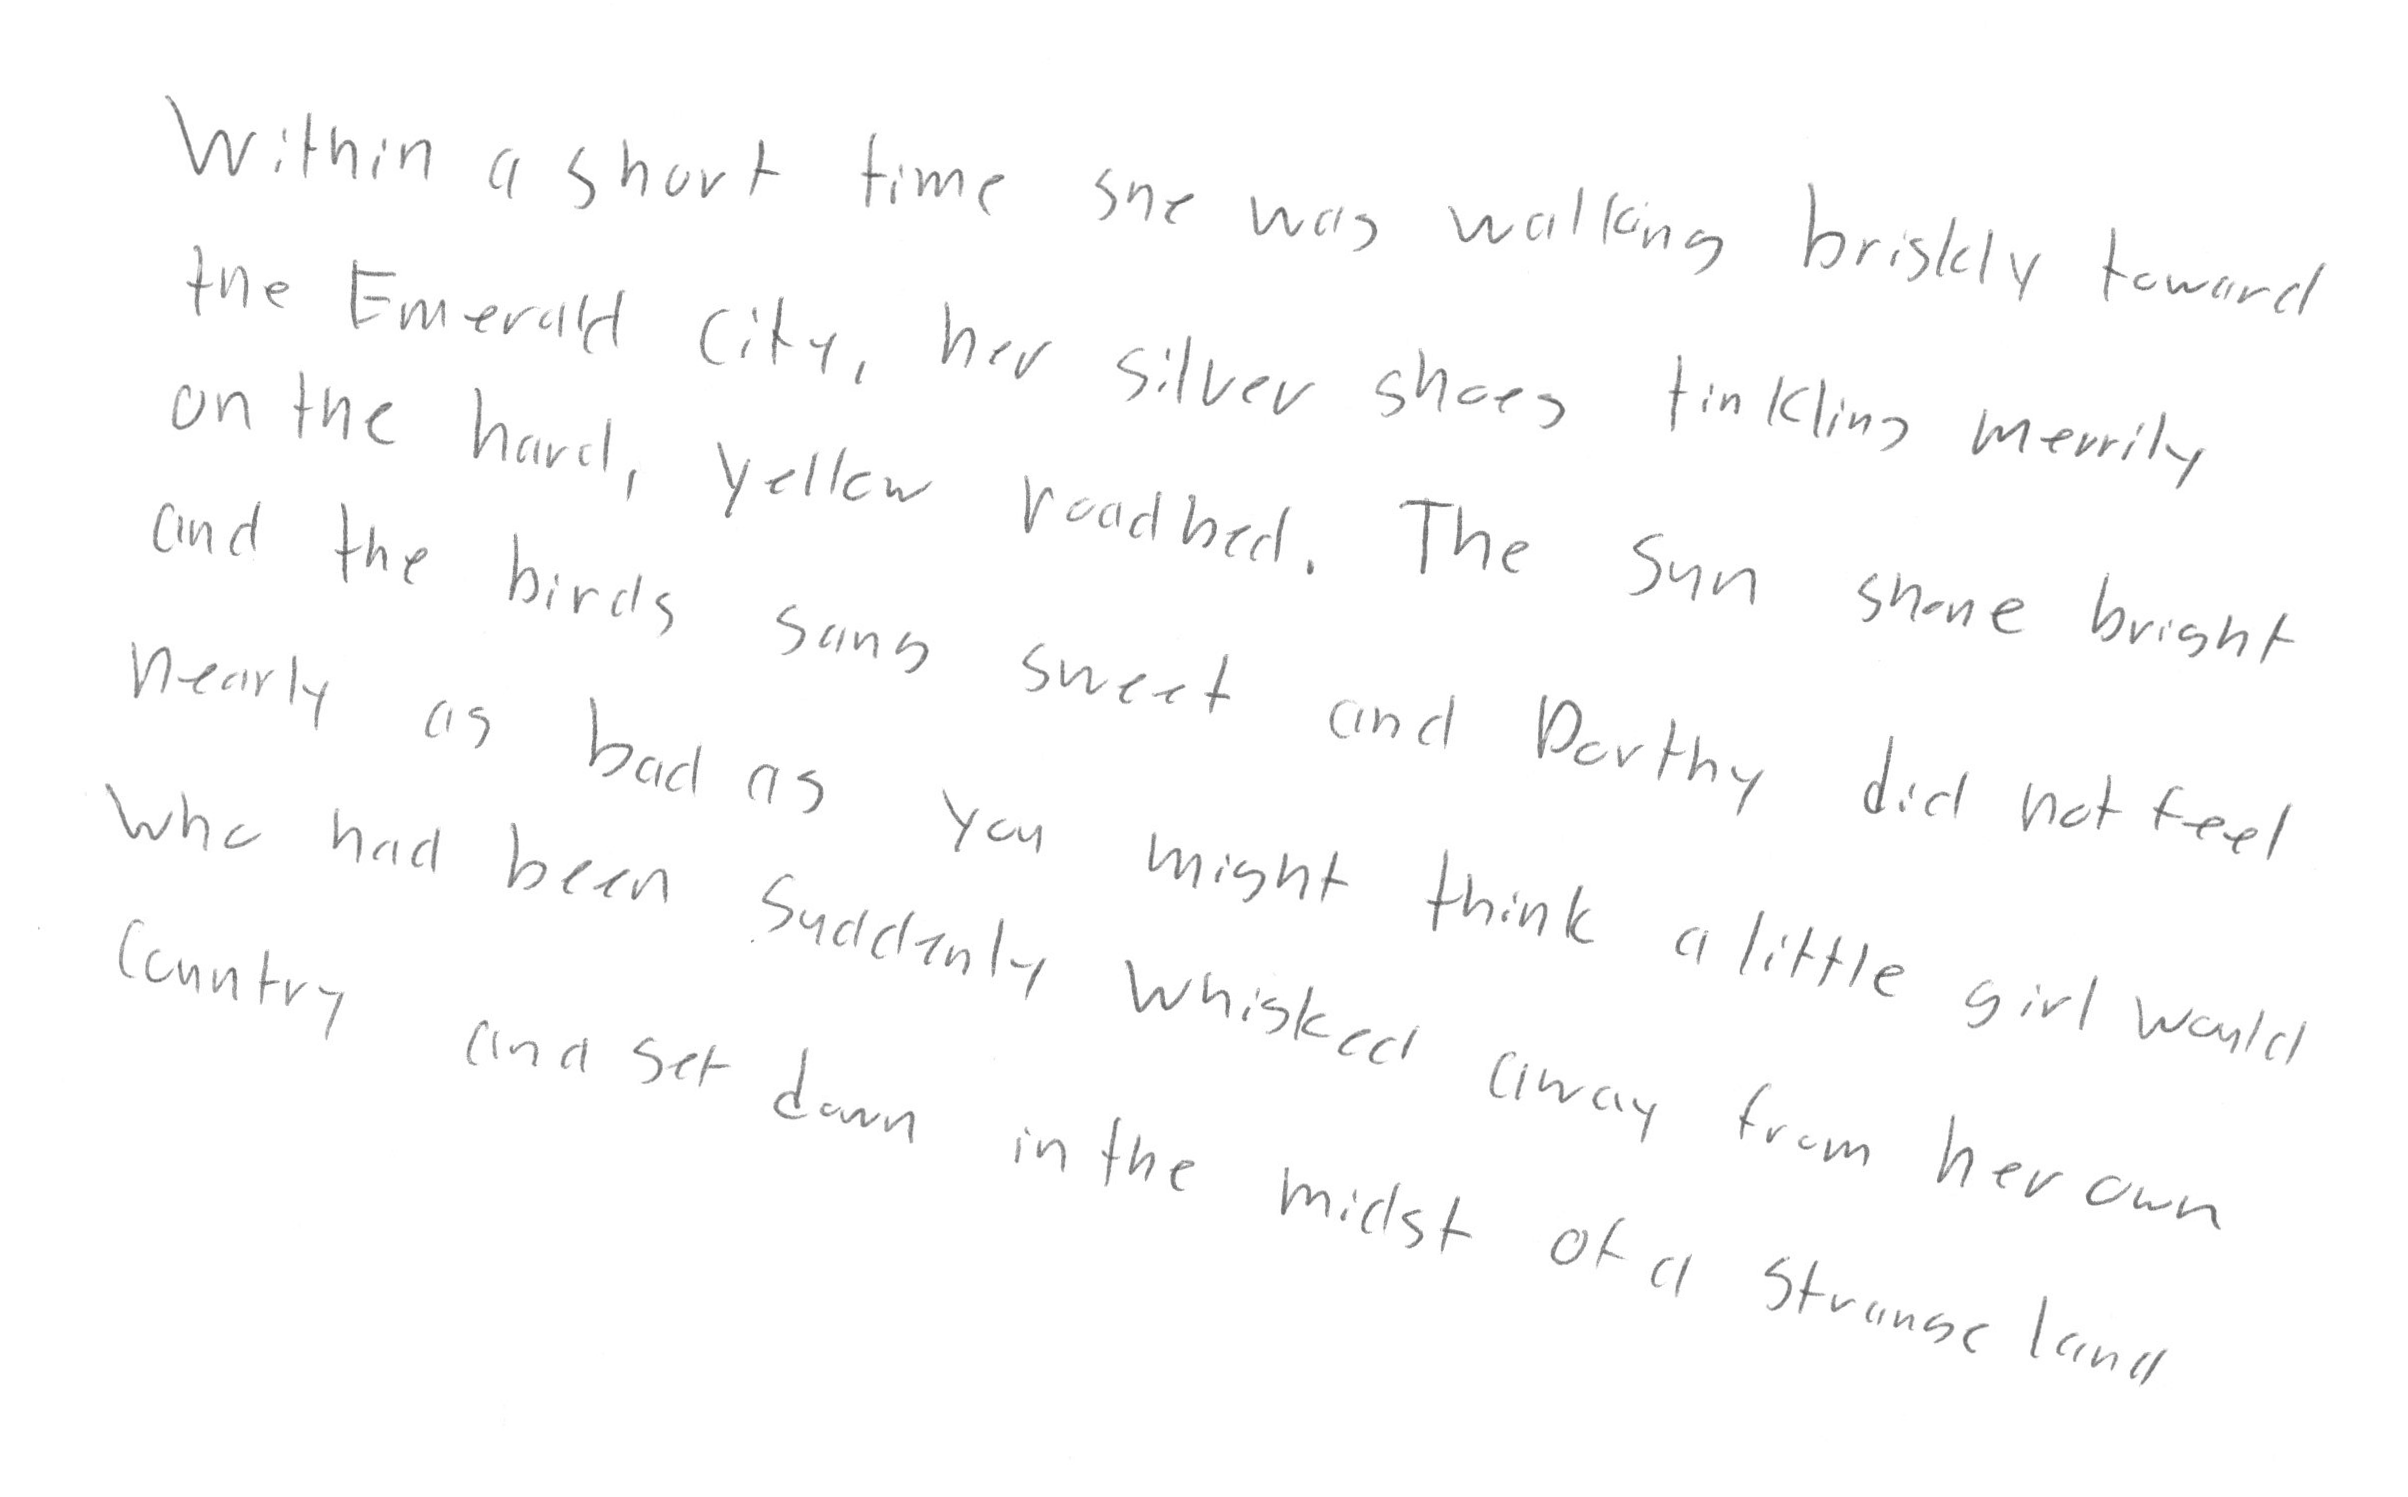 Within a short time she was walking briskly toward
the Emerald City, her silver shoes tinkling merrily
on the hard, yellow roadbed. The sun shone bright
and the birds sang sweet and Dorthy did not feel
nearly as bad as you might think a little girl would
who had been suddenly whisked away from her own
country and set down in the midst of a strange land